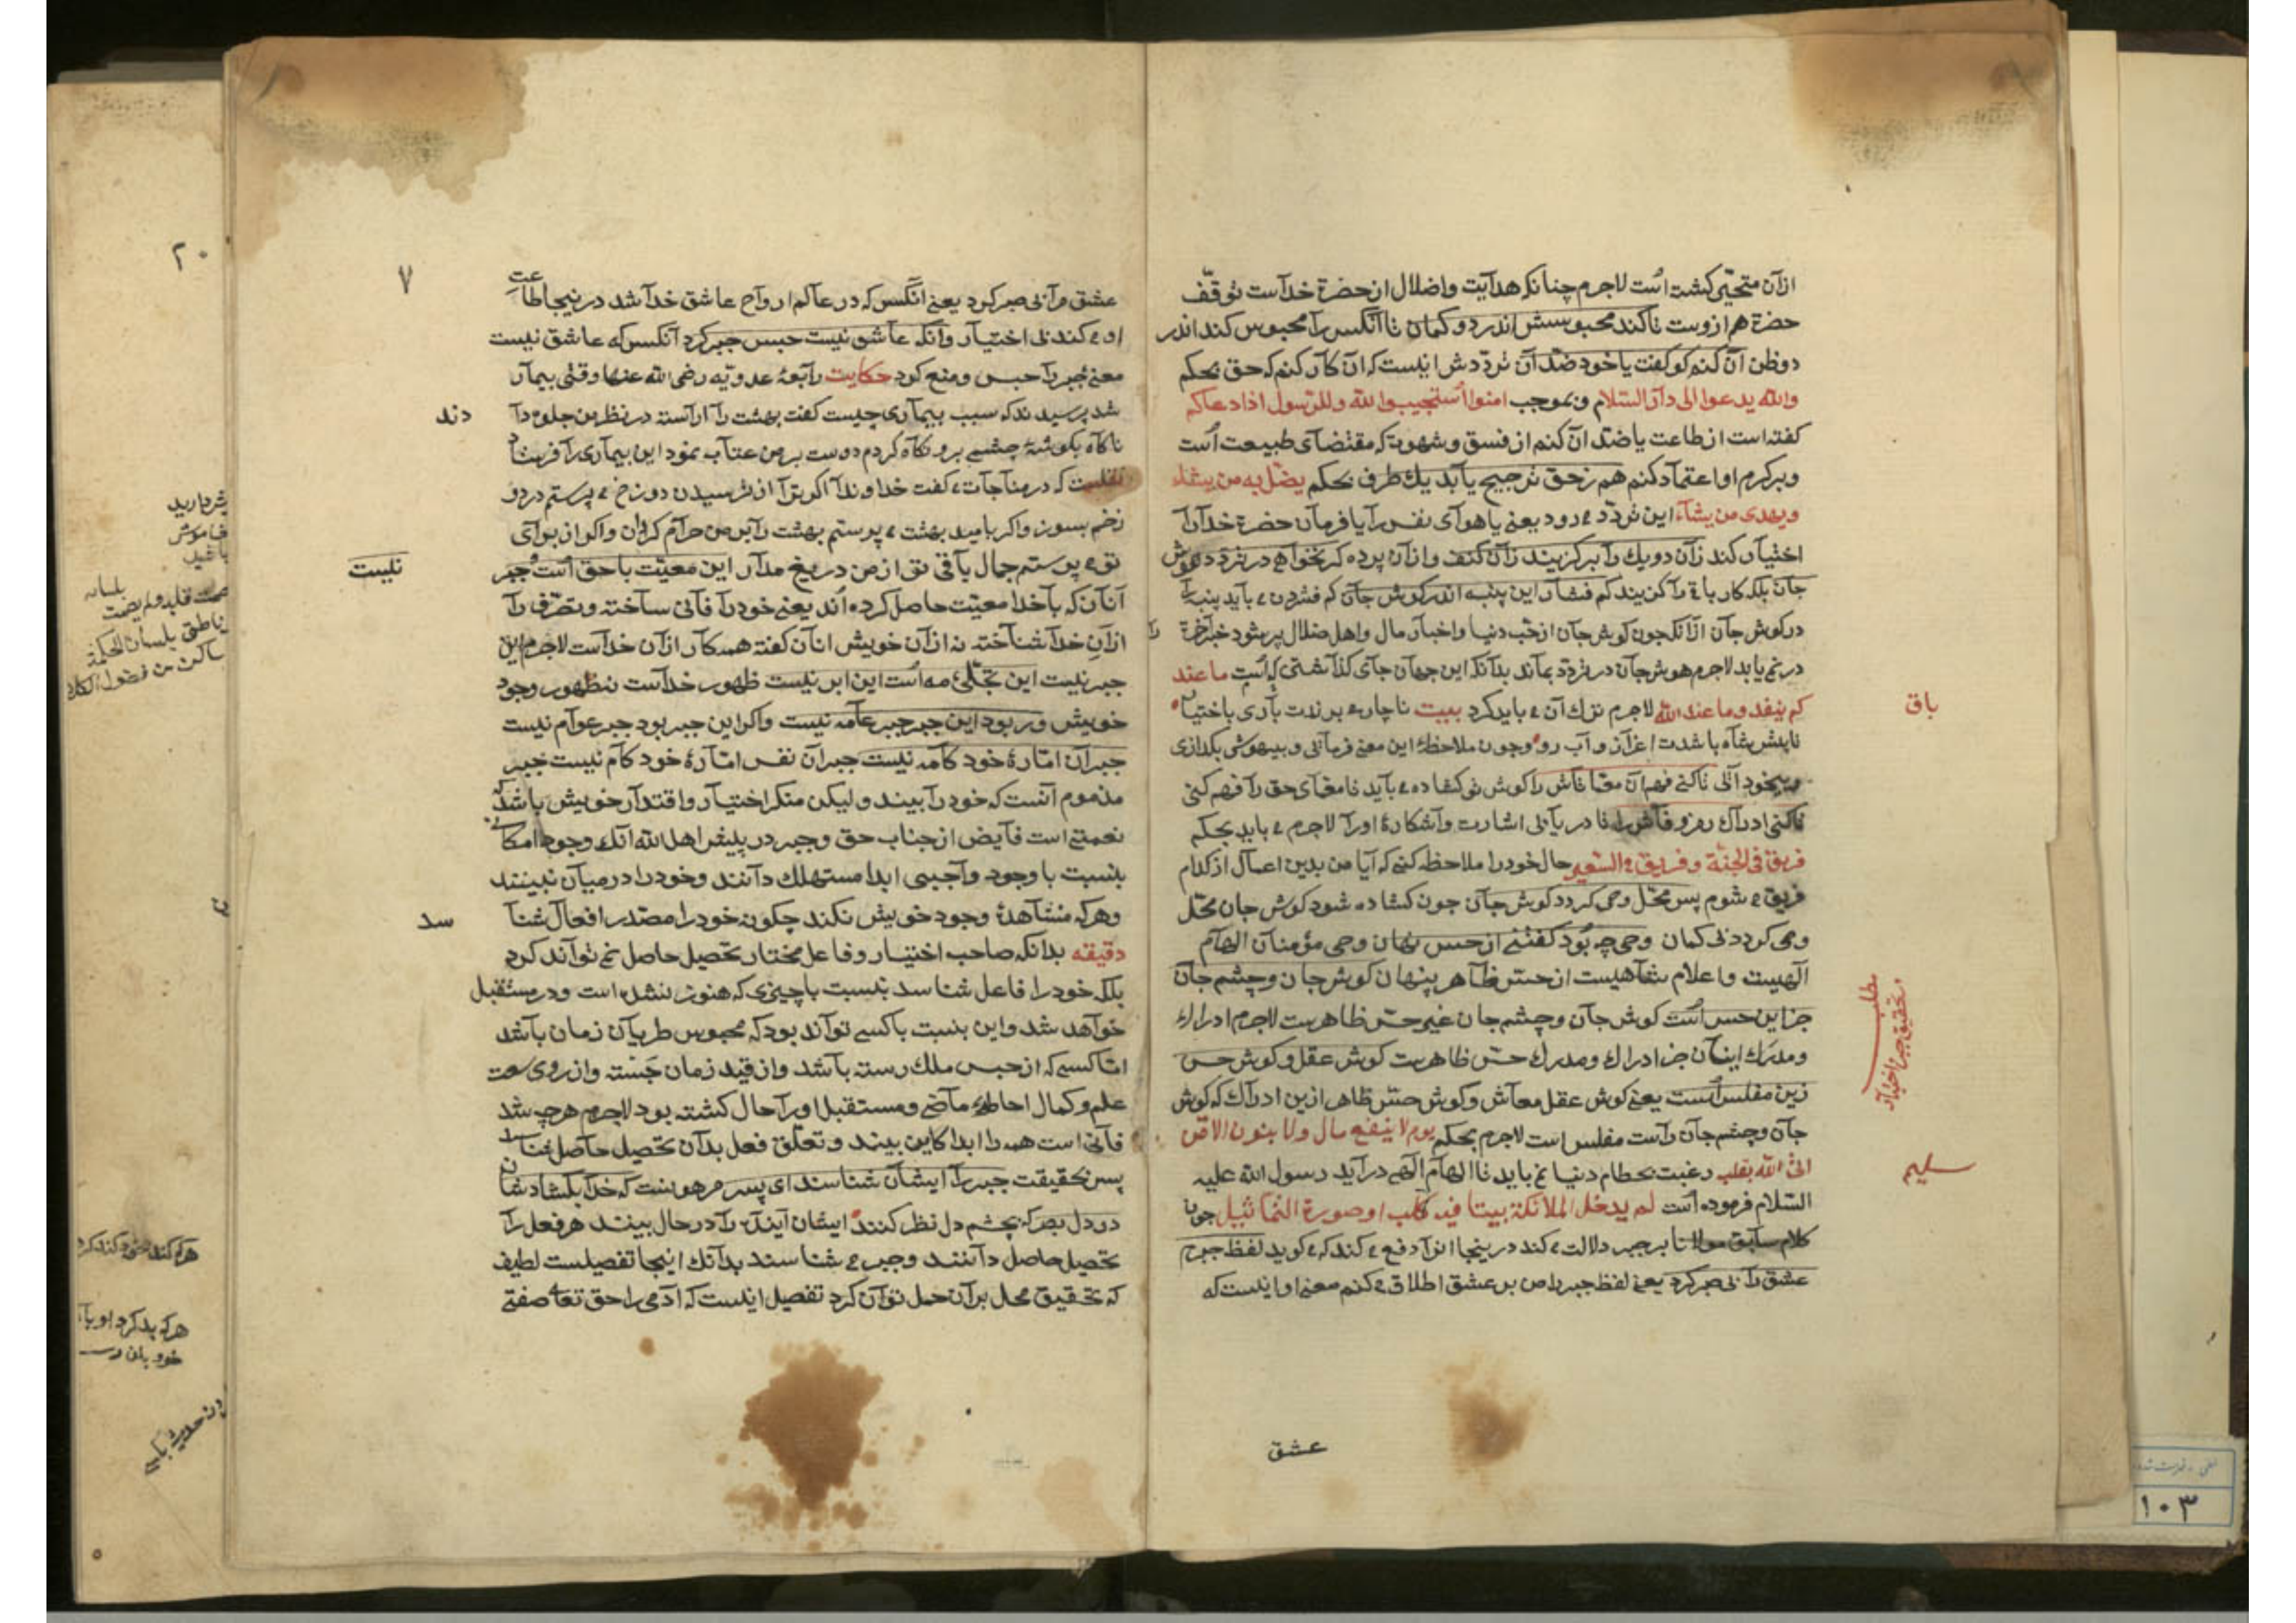 ازآن متحیّر کشته است لاجرم چنانکه هدآیت واضلال از حضرة خدآست توقّف
حضرة هم ازوست تا کند محبوسش اندر دو کمان تا آنکس رآ محبوس کند اندر
دوظن آن کنم کو کفت یا خود ضدّ آن تردّدش اینست که آن کآر کنم که حق بحکم
والله یدعوا الی دآر السّلام وبموجب امنوا استجیبوا لله وللرّسول اذا دعاکم
کفته است از طاعت یا ضدّ آن کنم از فسق و شهوة که مقتضآی طبیعت است
وبر کرم او اعتمآد کنم هم زحق ترجیح یآبد یك طرف بحکم یضلّ به من یشاء
ویهدی من یشآء این تردّد می رود یعنی یا هوآی نفس رآ یا فرمآن حضرة خدآرآ
اختیآر کند زآن دو یك رآ برکزیند زآن کنف وازآن پرده کر نخواهی در تردّد هوش
جآن بلکه کار باقی رآ کزیند کم فشآر این پنبه اندر کوش جآن کم فشردن می باید پنبه رآ
در کوش جآن ازآنکه چون کوش جآن از حبّ دنیا واخبآر مال واهل ضلال پر شود خبر آخرة رآ
در نمی یابد لاجرم هوش جآن در تردّد بمآند بدآنکه این جهآن جآی کذآشتی است ما عند
کم ینفد وما عند الله باق لاجرم ترك آن می باید کرد بیت ناچار می برندت بآری باختیآر
تا پیش شآه باشدت اعزآز وآب رو وچون ملاحظهٔ این معنی فرمآئی وبیهوشی بکذاری
وبیخود آئی تا کنی فهم آن معمّا تآش رآ کوش تو کشاده می بآید تا معمّآی حق رآ فهم کنی
تا کنی ادرآك رمز و فآش رآ تا دریآبی اشارت وآشکارهٔ اورآ لاجرم می باید بحکم
فریق فی الجنّة وفریق فی السّعیر حال خود رآ ملاحظه کنی که آیا من بدین اعمآل از کدام
فریق می شوم پس محلّ وحی کردد کوش جآن چون کشاده شود کوش جان محلّ
وحی کردد بی کمان وحی چه بُود کفتنی از حسّ نهان وحی مؤمنآن الهآم
الهیست واعلام شآهیست از حسّ ظآهر پنهان کوش جان وچشم جآن
جز این حس است کوش جآن وچشم جان غیر حسّ ظاهرست لاجرم ادراك
ومدرَك اینآن جز ادراك ومدرك حسّ ظاهرست کوش عقل وکوش حس
زین مفلس است یعنی کوش عقل معآش وکوش حسّ ظاهر ازین ادرآك که کوش
جآن وچشم جآن رآست مفلس است لاجرم بحکم یوم لا ینفع مال ولا بنون الا من
اتی الله بقلب سلیم رغبت بحطام دنیا نمی باید تا الهآم الهی درآید رسول الله علیه
السّلام فرموده است لم یدخل الملائکة بیتا فیه کلب او صورة التماثیل چون
کلام سآبق مولانا بر جبر دلالت می کند در ینجا انرآ دفع می کند که می کوید لفظ جبرم
عشق رآ بی صبر کرد یعنی لفظ جبر رآ من بر عشق اطلاق می کنم معنی او اینست که
عشق
مطلب
تحقیق جبر اختیار
۷
عشق مرآ بی صبر کرد یعنی آنکس که در عآلم ارواح عاشق خدآ شد درینجا طاعت
او می کند بی اختیآر وآنکه عآشق نیست حبس جبر کرد آنکس که عاشق نیست
معنی جبر رآ حبس ومنع کرد حکایت رآبعهٔ عدویّه رضی الله عنها وقتی بیمآر
شد پرسیدند که سبب بیمآری چیست کفت بهشت رآ آرآسته در نظر من جلوه دآدند
ناکآه بکوشهٔ چشمی برو نکآه کردم دوست بر من عتآب نمود این بیمآری رآ فرستآد
نقلست که در منآجآت می کفت خداوندآ اکر ترآ از ترسیدن دوزخ می پرستم در دوزخم
بسوز واکر بامید بهشت می پرستم بهشت رآ بر من حرآم کردان واکر از برآی
تو می پرستم جمال بآقی تو از من دریغ مدآر این معیّت با حق است وجبر نیست
آنآن که بآ خدآ معیّت حاصل کرده اند یعنی خود رآ فآنی سآخته وتصرّف رآ
ازآن خدآ شنآخته نه ازآن خویش انآن کفته همه کآر ازآن خدآست لاجرم این
جبر نیست این تجلّیِ مه است این ابر نیست ظهور خدآست نه ظهور وجود
خویش ور بود این جبر جبر عآمه نیست واکر این جبر بود جبر عوآم نیست
جبر آن امّارهٔ خود کآمه نیست جبر آن نفس امّآرهٔ خود کآم نیست جبر
مذموم آنست که خود رآ بیند ولیکن منکر اختیآر واقتدآر خویش باشد که
نعمتی است فآیض از جناب حق وجبر در پیش اهل الله آنکه وجود امکآنی
بنسبت با وجود وآجبی ابدا مستهلك دآنند وخود رآ در میآن نبینند
وهر که مشآهدهٔ وجود خویش نکند چکونه خود رآ مصدر افعآل شناسد
دقیقه بدانکه صاحب اختیار وفاعل مختار تحصیل حاصل نمی توآند کرد
بلکه خود رآ فاعل شناسد بنسبت با چیزی که هنوز نشده است ودر مستقبل
خوآهد شد واین بنسبت باکسی توآند بود که محبوس طریآن زمان بآشد
امّا کسی که از حبس ملك رسته بآشد واز قید زمان جَسته واز روی سعت
علم وکمال احاطه مآضی ومستقبل اورآ حال کشته بود لاجرم هر چه شد
فآنی است همه رآ ابدا کاین بیند وتعلّق فعل بدآن تحصیل حآصل شناسد
پس بحقیقت جبر رآ ایشآن شناسند ای پسر مرهوبست که خدآ بکشاد شان
در دل بصر که بچشم دل نظر کنند ایشان آینده رآ در حال بینند هر فعل رآ
تحصیل حاصل دآنند وجبر می شناسند بدآنك اینجا تفصیلست لطیف
که تحقیق محل بر آن حمل توآن کرد تفصیل اینست که آدمی رآ حق تعالی صفتی
۲۰
خاموش
باشید
۱۰۳